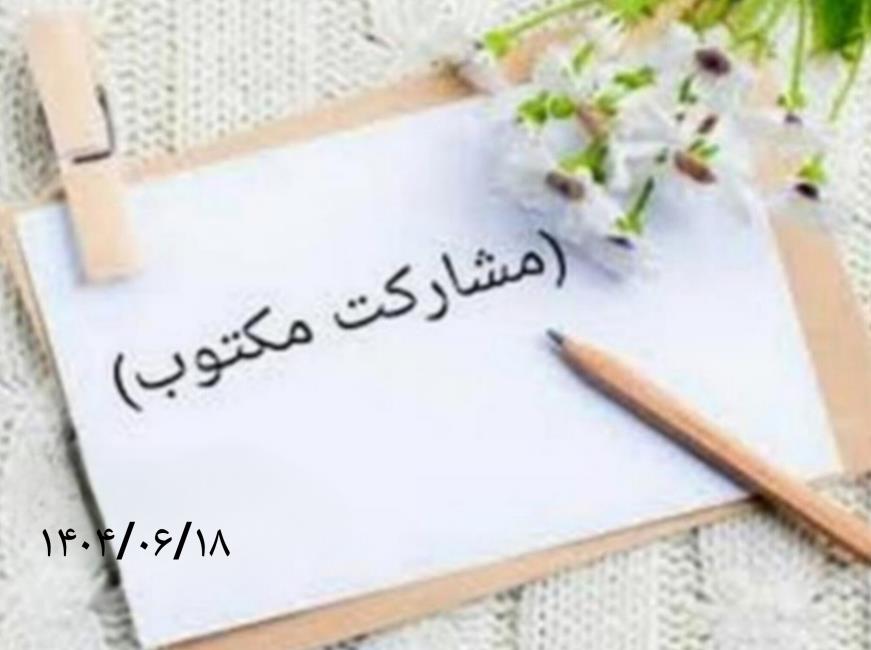 (مشارکت مکتوب)
۱۴۰۴/۰۶/۱۸